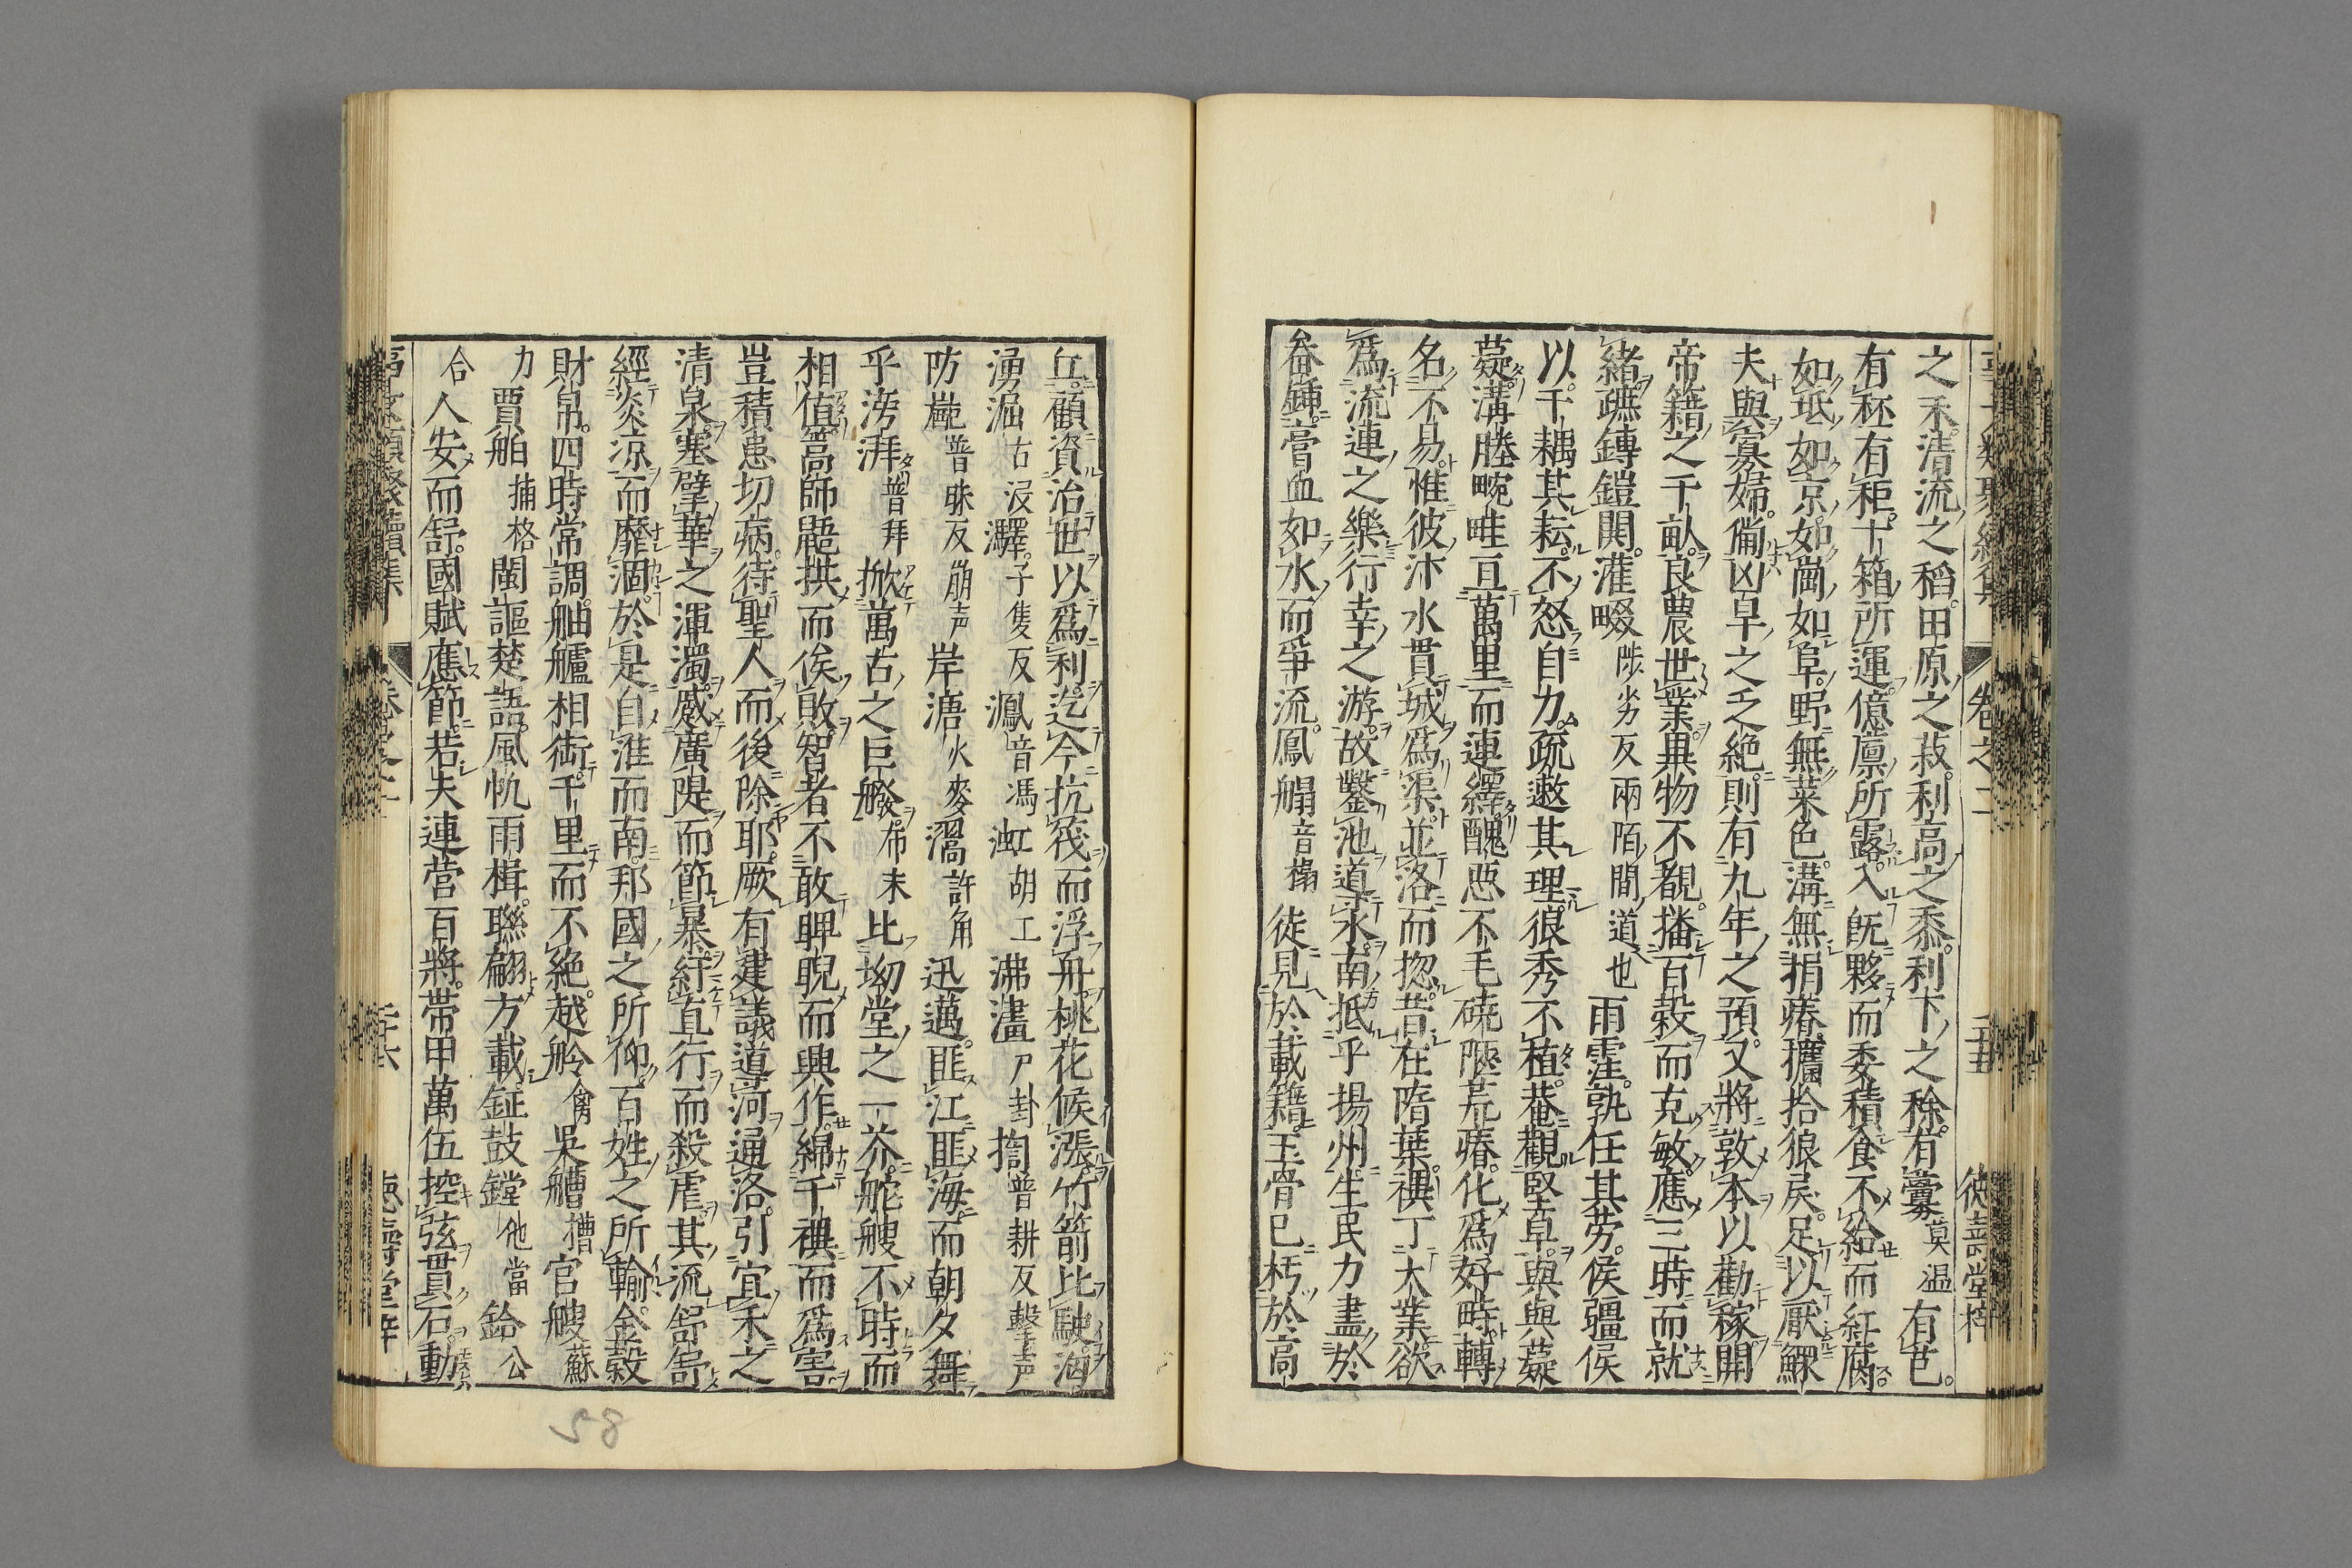 之禾清流之稻田原之菽利高之黍利下之稌有虋莫温有芑
有秠有秬千箱所運億廩所露入既夥而委積食不給而紅腐
如坻如京如崗如阜野無菜色溝無捐瘠攟拾狼戾足以厭鰥
夫與寡婦備凶旱之乏絶則有九年之預又將敦本以勸稼開
帝籍之千畝良農世業異物不覩播百穀而克敏應三時而就
緒䟽鏄鎧閧灌畷陟劣反兩陌間道也雨霪孰任其勞侯疆侯
以千耦其耘不怒自力疏遬其理狼秀不植菴觀堅皐與與薿
薿溝塍畹畦亘萬里而連繹醜惡不毛磽陿荒瘠化為好時轉
名不易惟彼汴水貫城為渠並洛而揔昔在隋葉禩丁大業欲
為流連之樂行幸之游故鑿池道水南抵乎揚州生民力盡於
畚鍤膏血如水而爭流鳳䑽音榻徒見於載籍玉骨已朽於高
丘顧資治世以為利迄今杭筏而浮舟桃花候漲竹箭比駛洶
湧淈古浸㶠子隻反渢音馮𣲲胡工沸㵧尸卦㧾普耕反擊声
防𣠽普昧反崩声岸溏火麥㶅許角迅邁匪江匪海而朝夕舞
乎滂湃普拜掀萬古之巨䑺布末比坳堂之一芥舵艘不時而
相值篙師齷拱而俟敗智者不敢睥睨而興作綿千禩而為害
豈積患切病待聖人而後除耶厥有建議道河通洛引宜禾之
清泉塞擘華之渾濁蹙廣隄而節暴紆直行而殺虐其流舒舒
經炎凉而靡涸於是自淮而南邦國之所仰百姓之所輸金穀
財帛四時常調舳艫相銜千里而不絶越舲禽吳艚漕官艘蘇
力賈舶捕格閩謳楚語風帆雨楫聯翩方載鉦鼓鏜他當鈴公
合人安而舒國賦應節若夫連營百將帶甲萬伍控弦貫石動